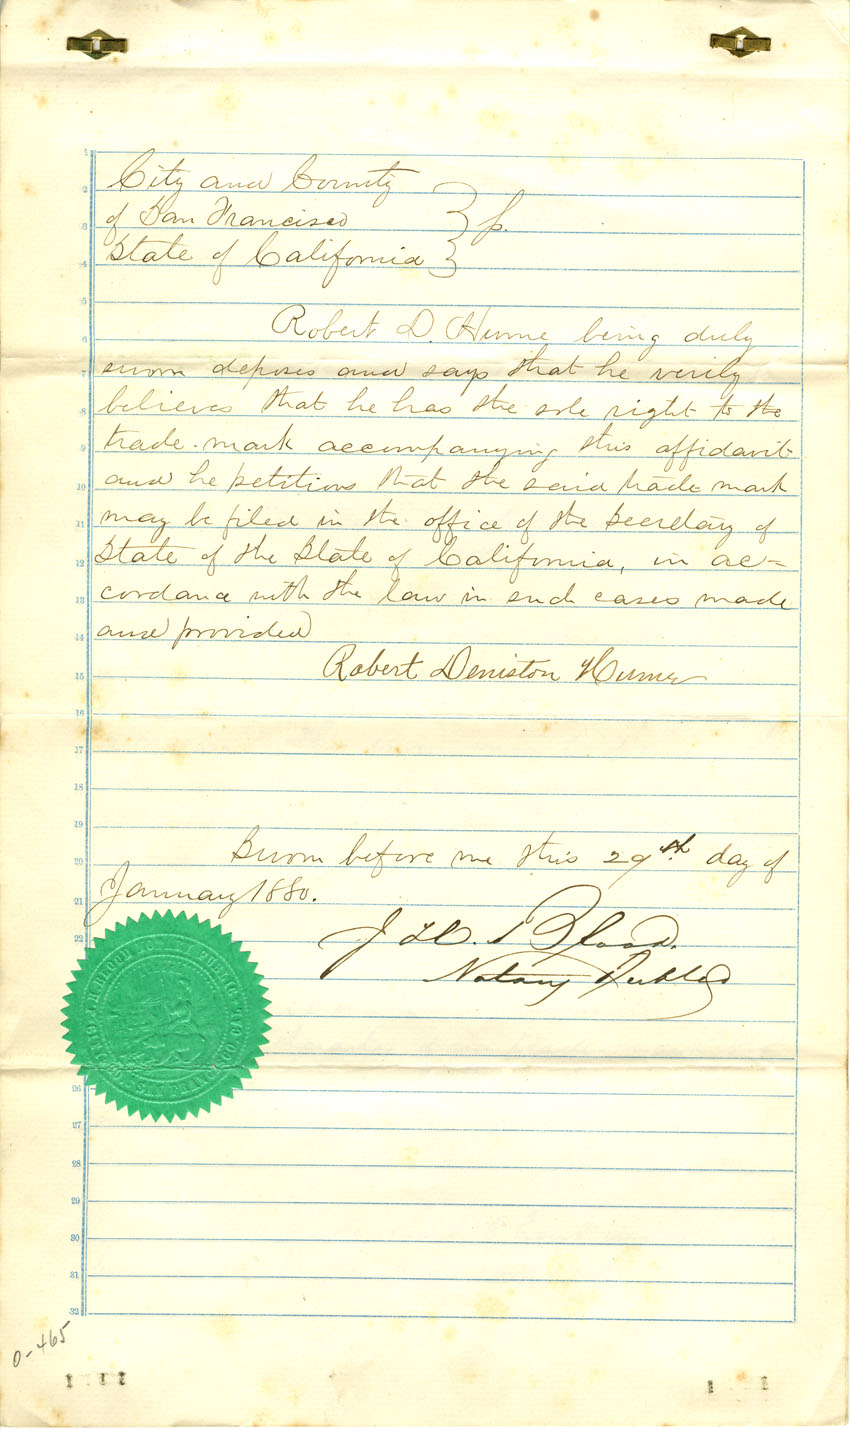 City and County
of San Francisco } ss.
State of California
Robert D. Hume being duly
sworn deposes and says that he verily
believes that he has the sole right to the
trade-mark accompanying this affidavit
and he petitions that the said trade mark
may be filed in the office of the Secretary of
State of the State of California, in ac=
cordance with the law in such cases made
and provided
Robert Deniston Hume
Sworn before me this 29th. day of
January 1880.
J H. Blood.
Notary Public
0-465
1
2
3
4
5
6
7
8
9
10
11
12
13
14
15
16
17
18
19
20
21
22
26
27
28
29
30
31
32